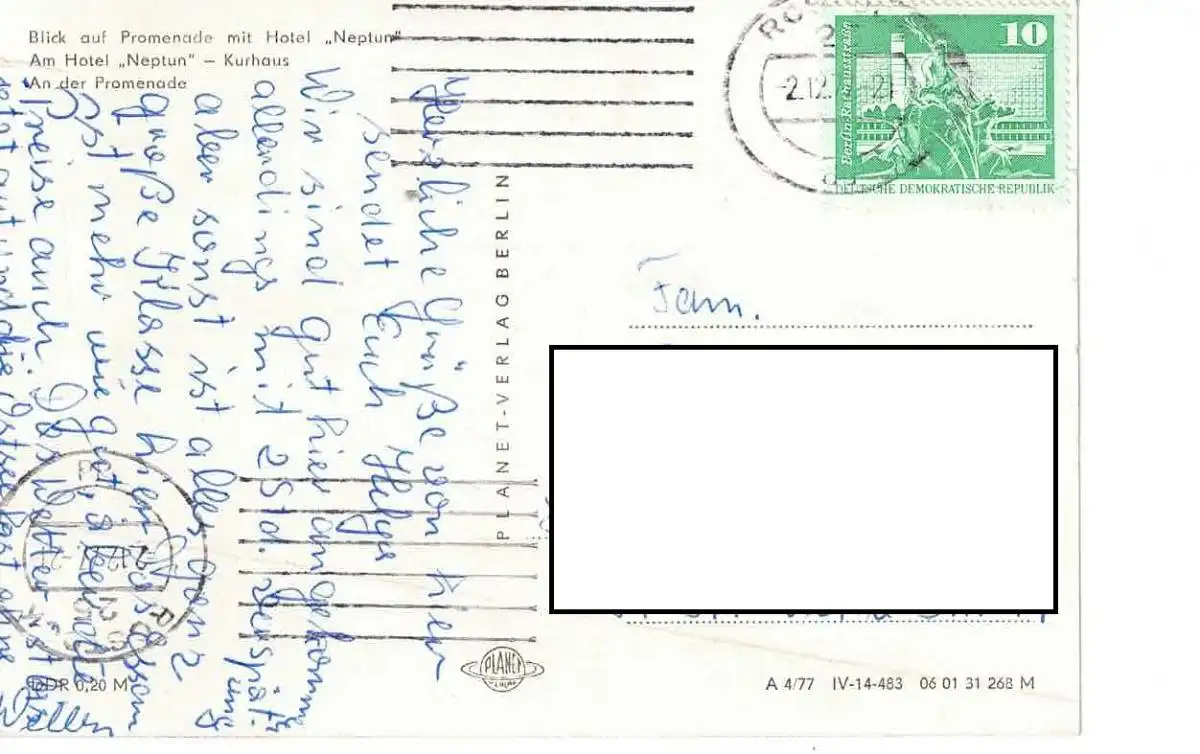 Blick auf Promenade mit Hotel „Neptun"
Am Hotel „Neptun" – Kurhaus
An der Promenade
Herzliche Grüße von hier
sendet Euch Helga
Wir sind gut hier angekomm
allerdings mit 2 Std. Verspätung
aber sonst ist alles ganz
große Klasse hier. Das Essen
ist mehr wie gut, s
Preise auch. Das Wetter ist
gut und die Ostsee fast ohne
Wellen
PLANET-VERLAG BERLIN
10
Berlin-Rathausstraße
DEUTSCHE DEMOKRATISCHE REPUBLIK
-2.12.
Fam.
PLANET
DDR 0,20 M
A 4/77 IV-14-483 06 01 31 268 M